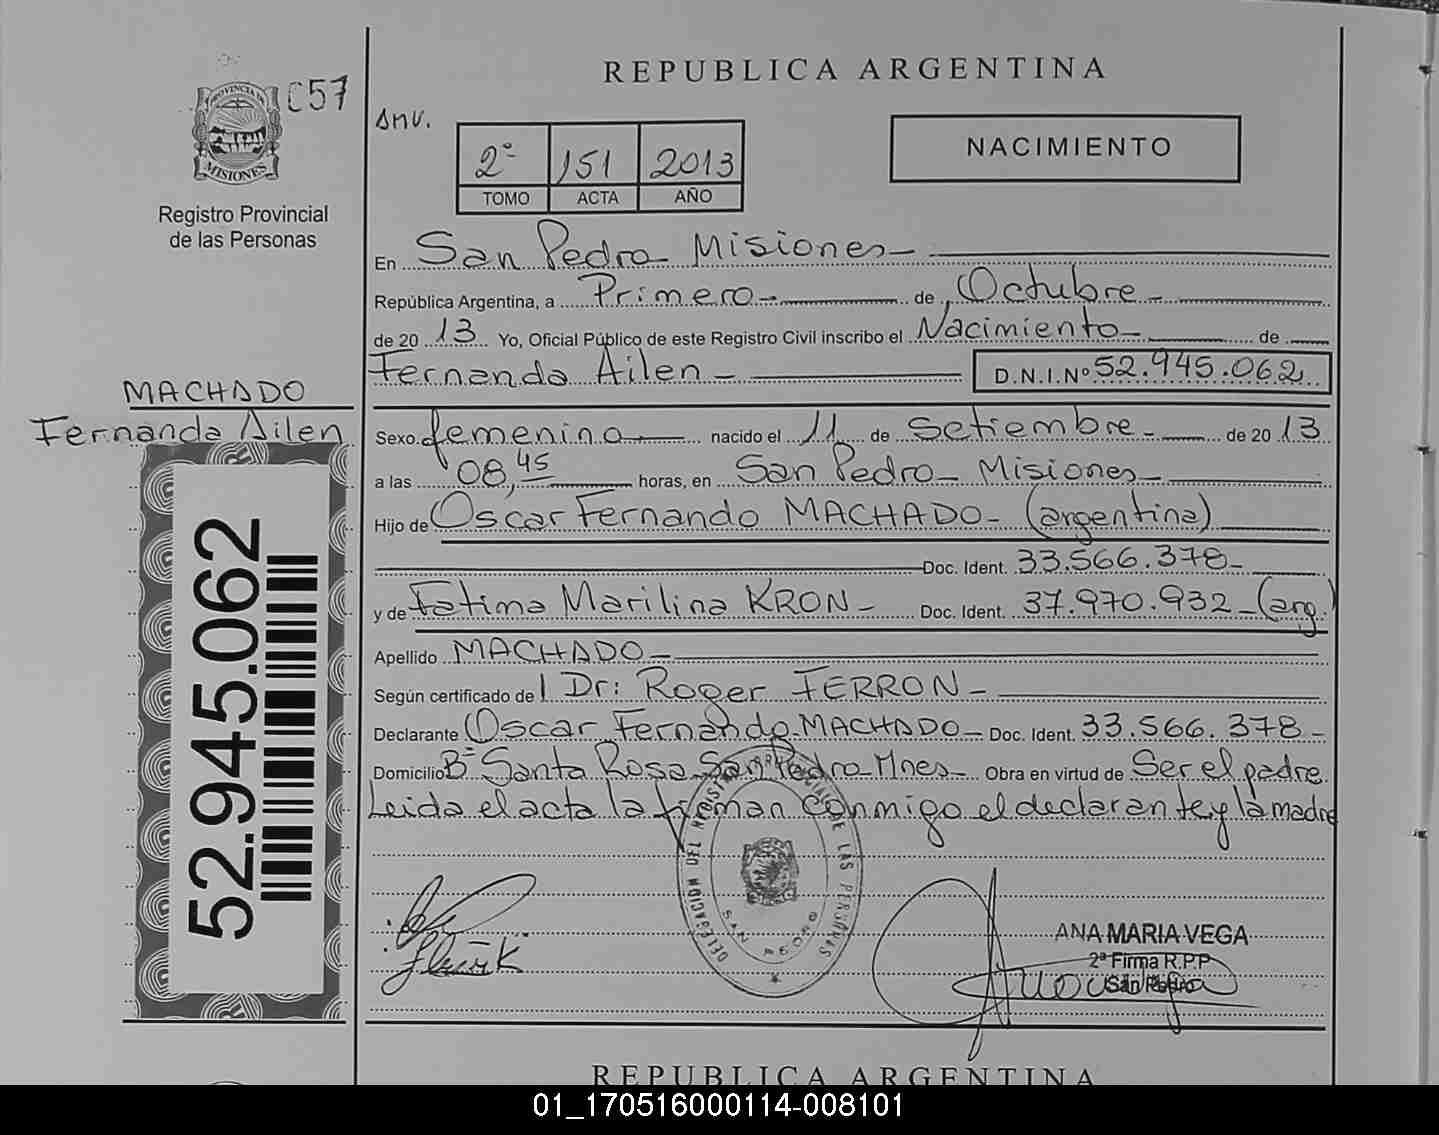 REPUBLICA ARGENTINA
PROVINCIA DE
MISIONES
C57
Registro Provincial
de las Personas
Anv.
2º 151 2013
TOMO ACTA AÑO
NACIMIENTO
En San Pedro Misiones
República Argentina, a Primero de Octubre
de 2013 Yo, Oficial Público de este Registro Civil inscribo el Nacimiento de
Fernanda Ailen D.N.I.Nº 52.945.062
MACHADO
Fernanda Ailen
Sexo femenino nacido el 11 de Setiembre de 2013
a las 08,45 horas, en San Pedro Misiones
Hijo de Oscar Fernando MACHADO (argentina)
Doc. Ident. 33.566.378
y de Fatima Marilina KRON Doc. Ident. 37.970.932 (arg.)
Apellido MACHADO
Según certificado del Dr: Roger FERRON
Declarante Oscar Fernando MACHADO Doc. Ident. 33.566.378
Domicilio Bº Santa Rosa San Pedro Mnes Obra en virtud de Ser el padre
Leida el acta la firman conmigo el declarante y la madre
52.945.062
DELEGACION DEL REGISTRO PROVINCIAL DE LAS PERSONAS
SAN PEDRO
ANA MARIA VEGA
2ª Firma R.P.P
San Pedro
REPUBLICA ARGENTINA
01_170516000114-008101